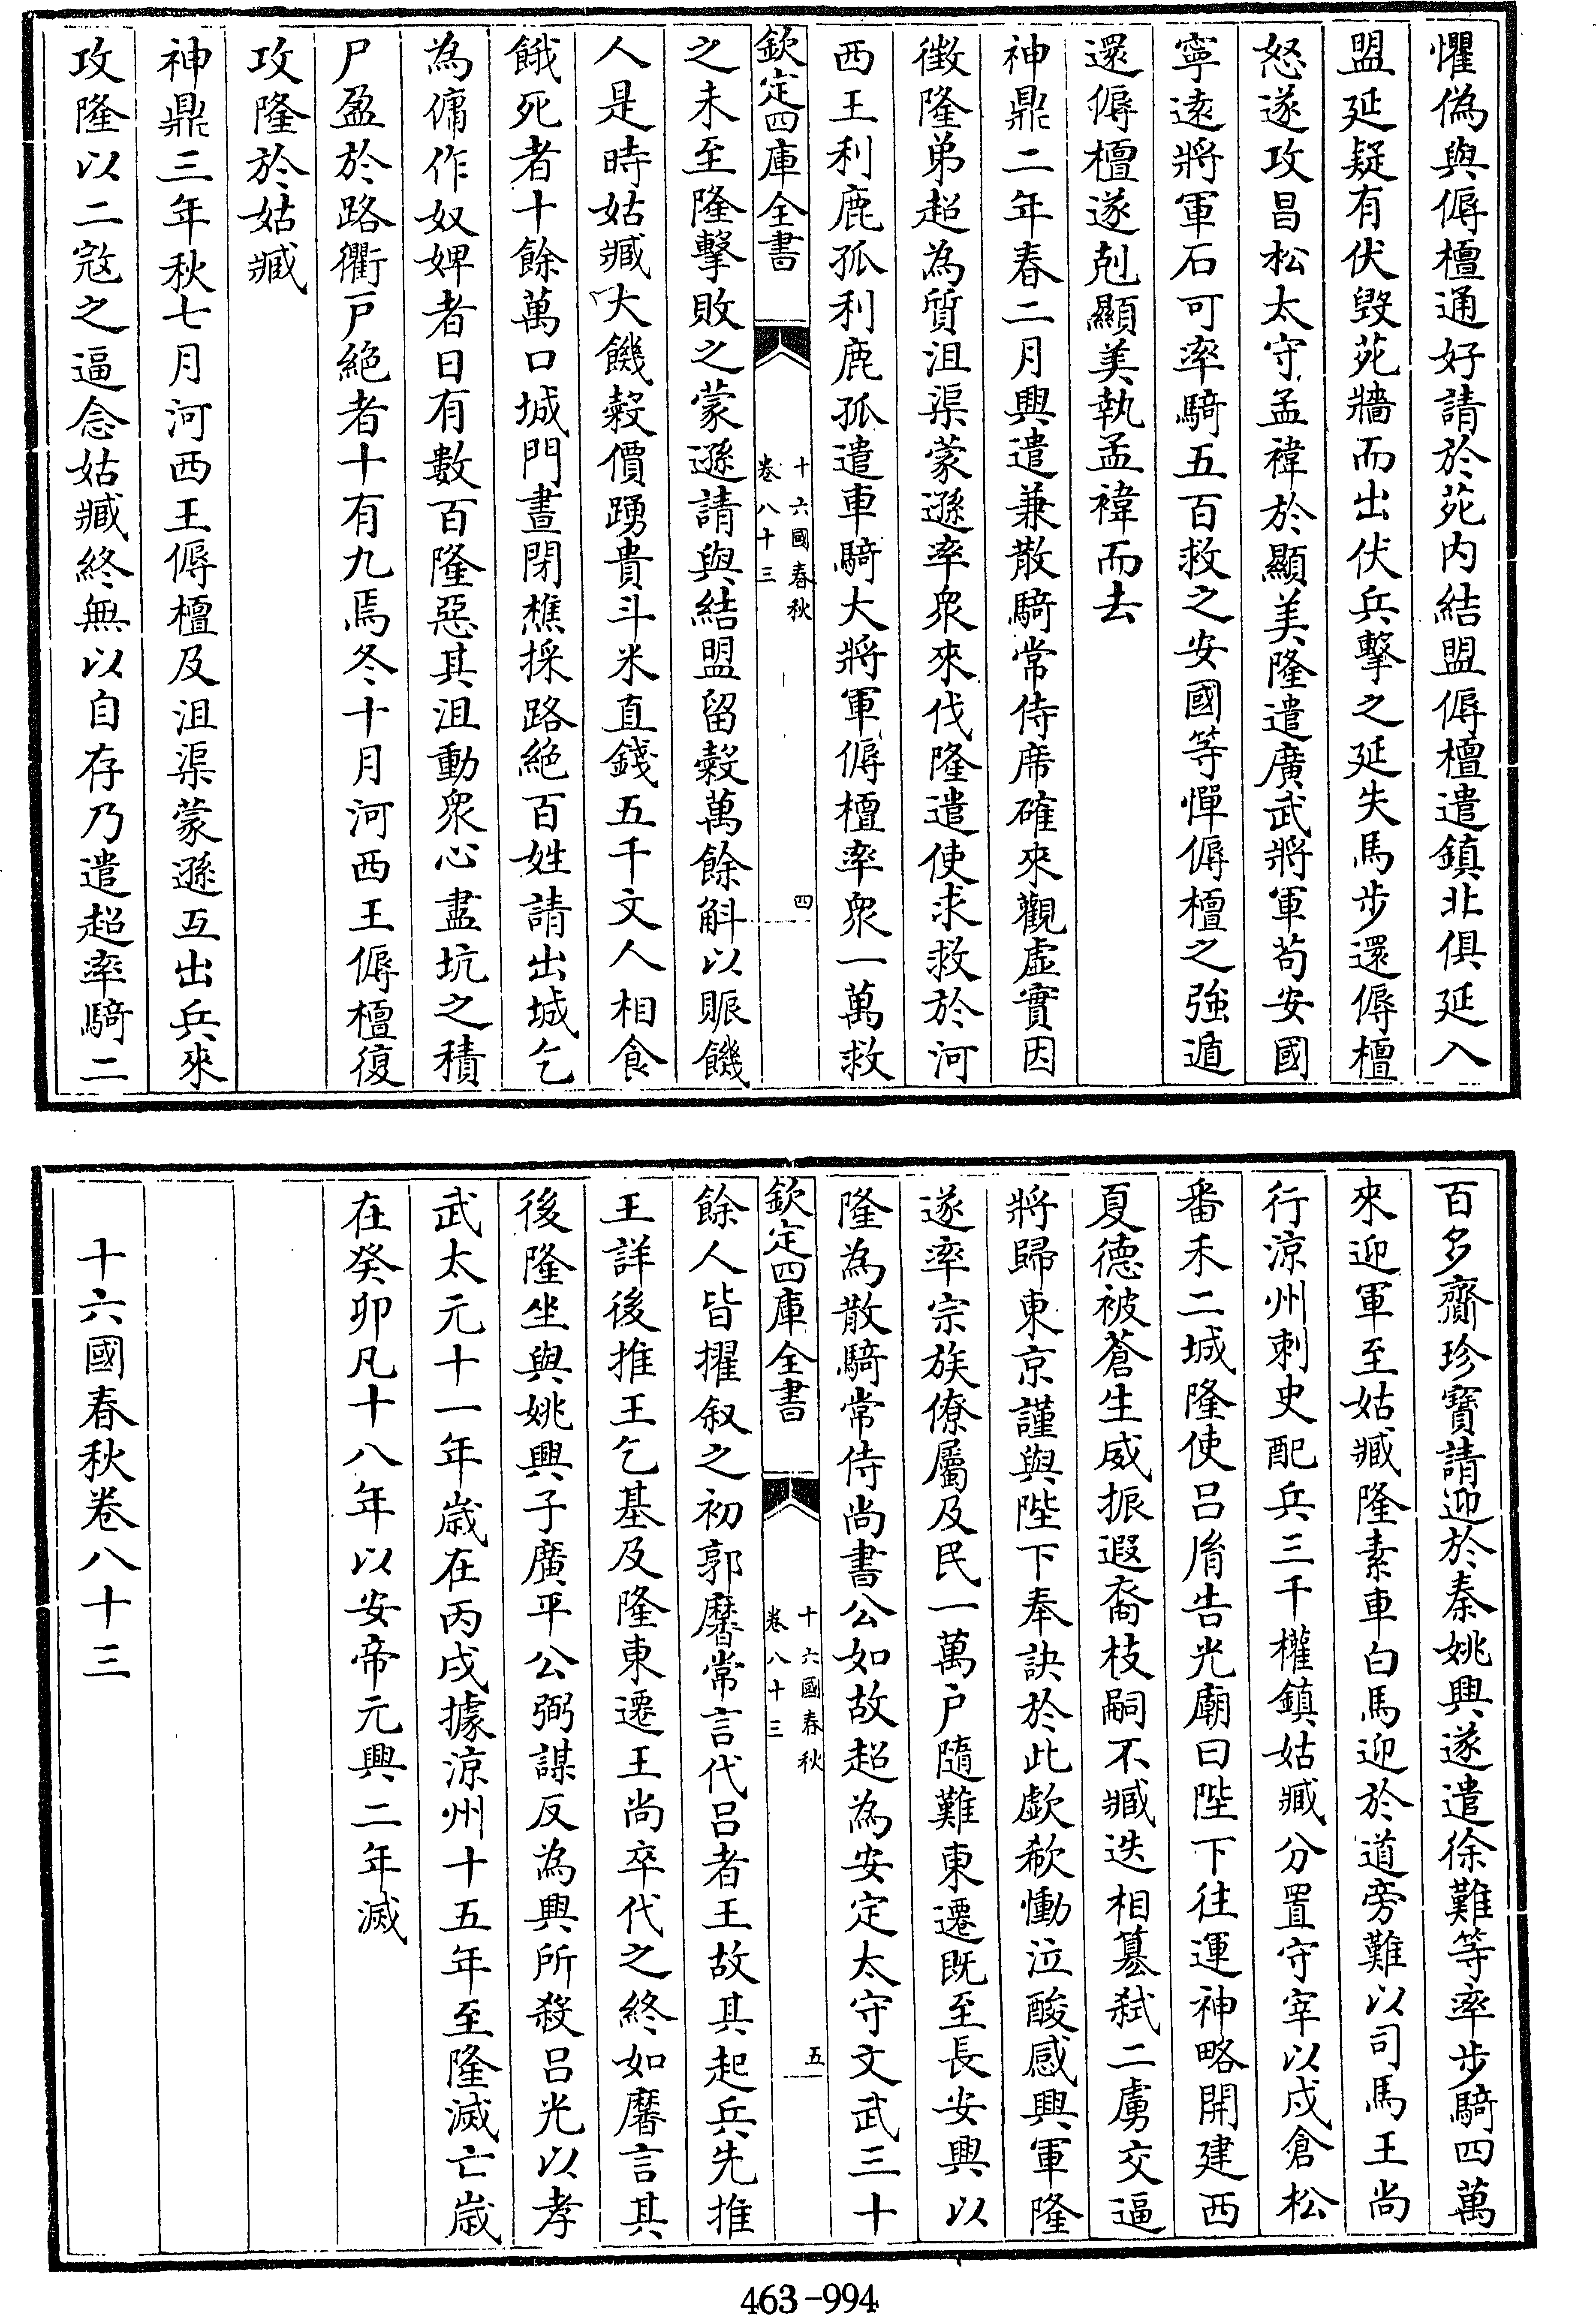 懼偽與傉檀通好請於苑内結盟傉檀遣鎮北俱延入
盟延疑有伏毀苑牆而出伏兵擊之延失馬步還傉檀
怒遂攻昌松太守孟禕於顯美隆遣廣武將軍苟安國
寧遠將軍石可率騎五百救之安國等憚傉檀之強遁
還傉檀遂剋顯美執孟禕而去
神鼎二年春二月興遣兼散騎常侍席確來觀虛實因
徵隆弟超為質沮渠蒙遜率衆來伐隆遣使求救於河
西王利鹿孤利鹿孤遣車騎大將軍傉檀率衆一萬救
欽定四庫全書
十六國春秋
卷八十三
四
之未至隆擊敗之蒙遜請與結盟留穀萬餘斛以賑饑
人是時姑臧大饑穀價踴貴斗米直錢五千文人相食
餓死者十餘萬口城門晝閉樵採路絶百姓請出城乞
為傭作奴婢者日有數百隆惡其沮動衆心盡坑之積
尸盈於路衢戸絶者十有九焉冬十月河西王傉檀復
攻隆於姑臧
神鼎三年秋七月河西王傉檀及沮渠蒙遜互出兵來
攻隆以二寇之逼念姑臧終無以自存乃遣超率騎二
百多齎珍寶請迎於秦姚興遂遣徐難等率步騎四萬
來迎軍至姑臧隆素車白馬迎於道旁難以司馬王尚
行涼州刺史配兵三千權鎮姑臧分置守宰以戍倉松
番禾二城隆使吕胤告光廟曰陛下往運神略開建西
夏德被蒼生威振遐裔枝嗣不臧迭相簒弑二虜交逼
將歸東京謹與陛下奉訣於此歔欷慟泣酸感興軍隆
遂率宗族僚屬及民一萬户隨難東遷既至長安興以
隆為散騎常侍尚書公如故超為安定太守文武三十
欽定四庫全書
十六國春秋
卷八十三
五
餘人皆擢叙之初郭黁常言代吕者王故其起兵先推
王詳後推王乞基及隆東遷王尚卒代之終如黁言其
後隆坐與姚興子廣平公弼謀反為興所殺吕光以孝
武太元十一年歲在丙戌據涼州十五年至隆滅亡歲
在癸卯凡十八年以安帝元興二年滅
十六國春秋卷八十三
463-994